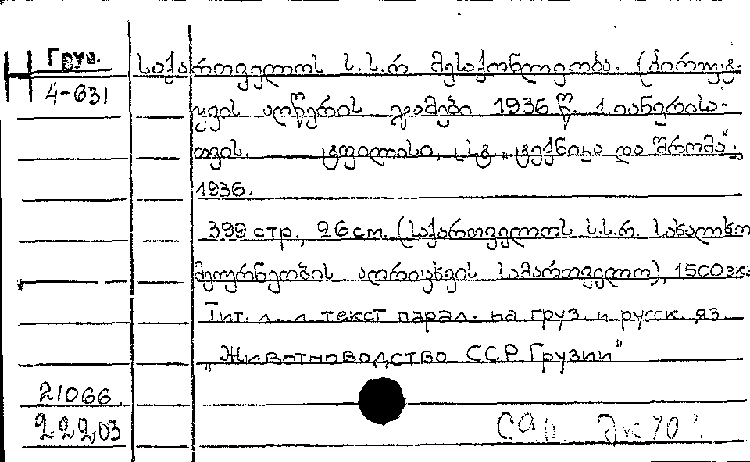 Груз.
4-631
საქართველოს ს.ს.რ. მესაქონლეობა. (პირუტ-
ყვის აღწერის შედეგები 1936 წ. 1 იანვრისა-
თვის. ტფილისი, სტ. „ტექნიკა და შრომა".
1936.
398 стр., 26 см. (საქართველოს ს.ს.რ. სახალხო
მეურნეობის აღრიცხვის სამმართველო), 1500 экз.
Тит. л. и текст парал. на груз. и русск. яз.
„Животноводство ССР Грузии"
21066.
22203